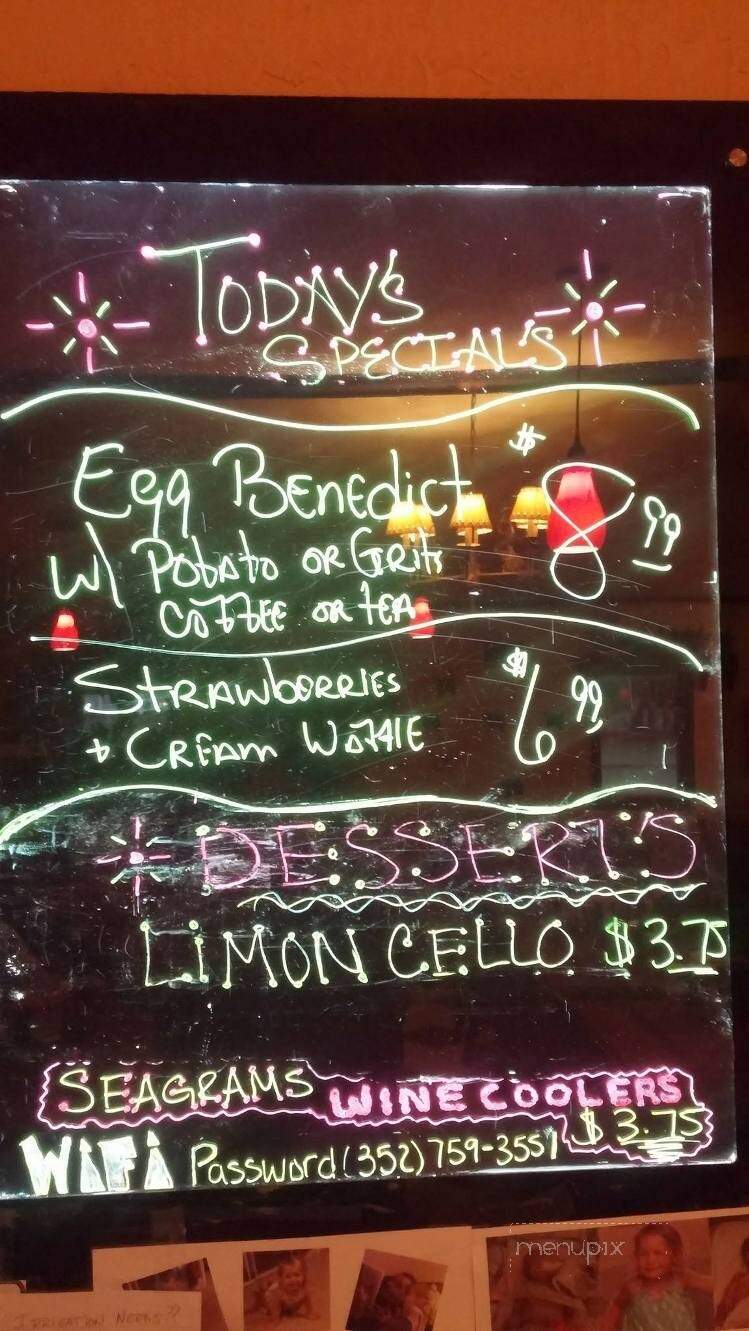 TODAY'S
SPECIAL'S
Egg Benedict $8.99
W/ Potato or Grits
Coffee or tea
Strawberries $6.99
+ Cream Waffle
DESSERT'S
LIMON CELLO $3.75
SEAGRAMS WINE COOLERS
$3.75
WiFi Password (352) 759-3551
menupix
IRRIGATION NEEDS??